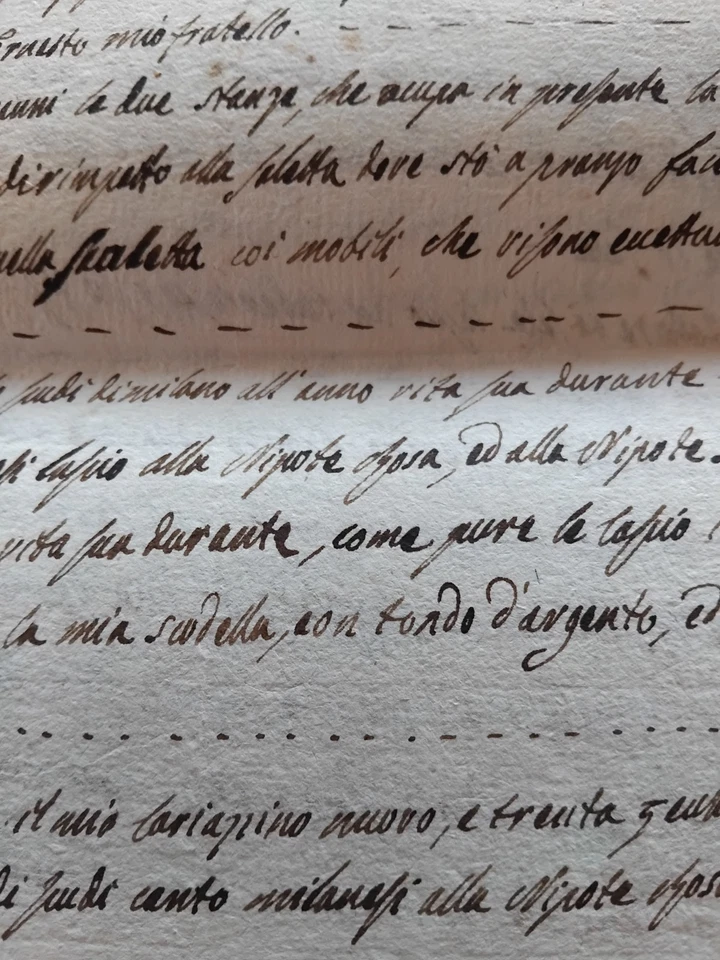 Ernesto mio fratello. – – – – – –
le due stanze, che ocupa in presente la
dirimpetto alla saletta dove stò a pranzo
saletta coi mobili, che visono
– – – – – – – – – – – – –
scudi dimilano all'anno vita sua durante
lascio alla Nipote Sposa, ed alla Nipote
vita sua durante, come pure le lascio
la mia scodella, con tondo d'argento, ed
il mio nuovo, e trenta
scudi cento milanesi alla Nipote Sposa